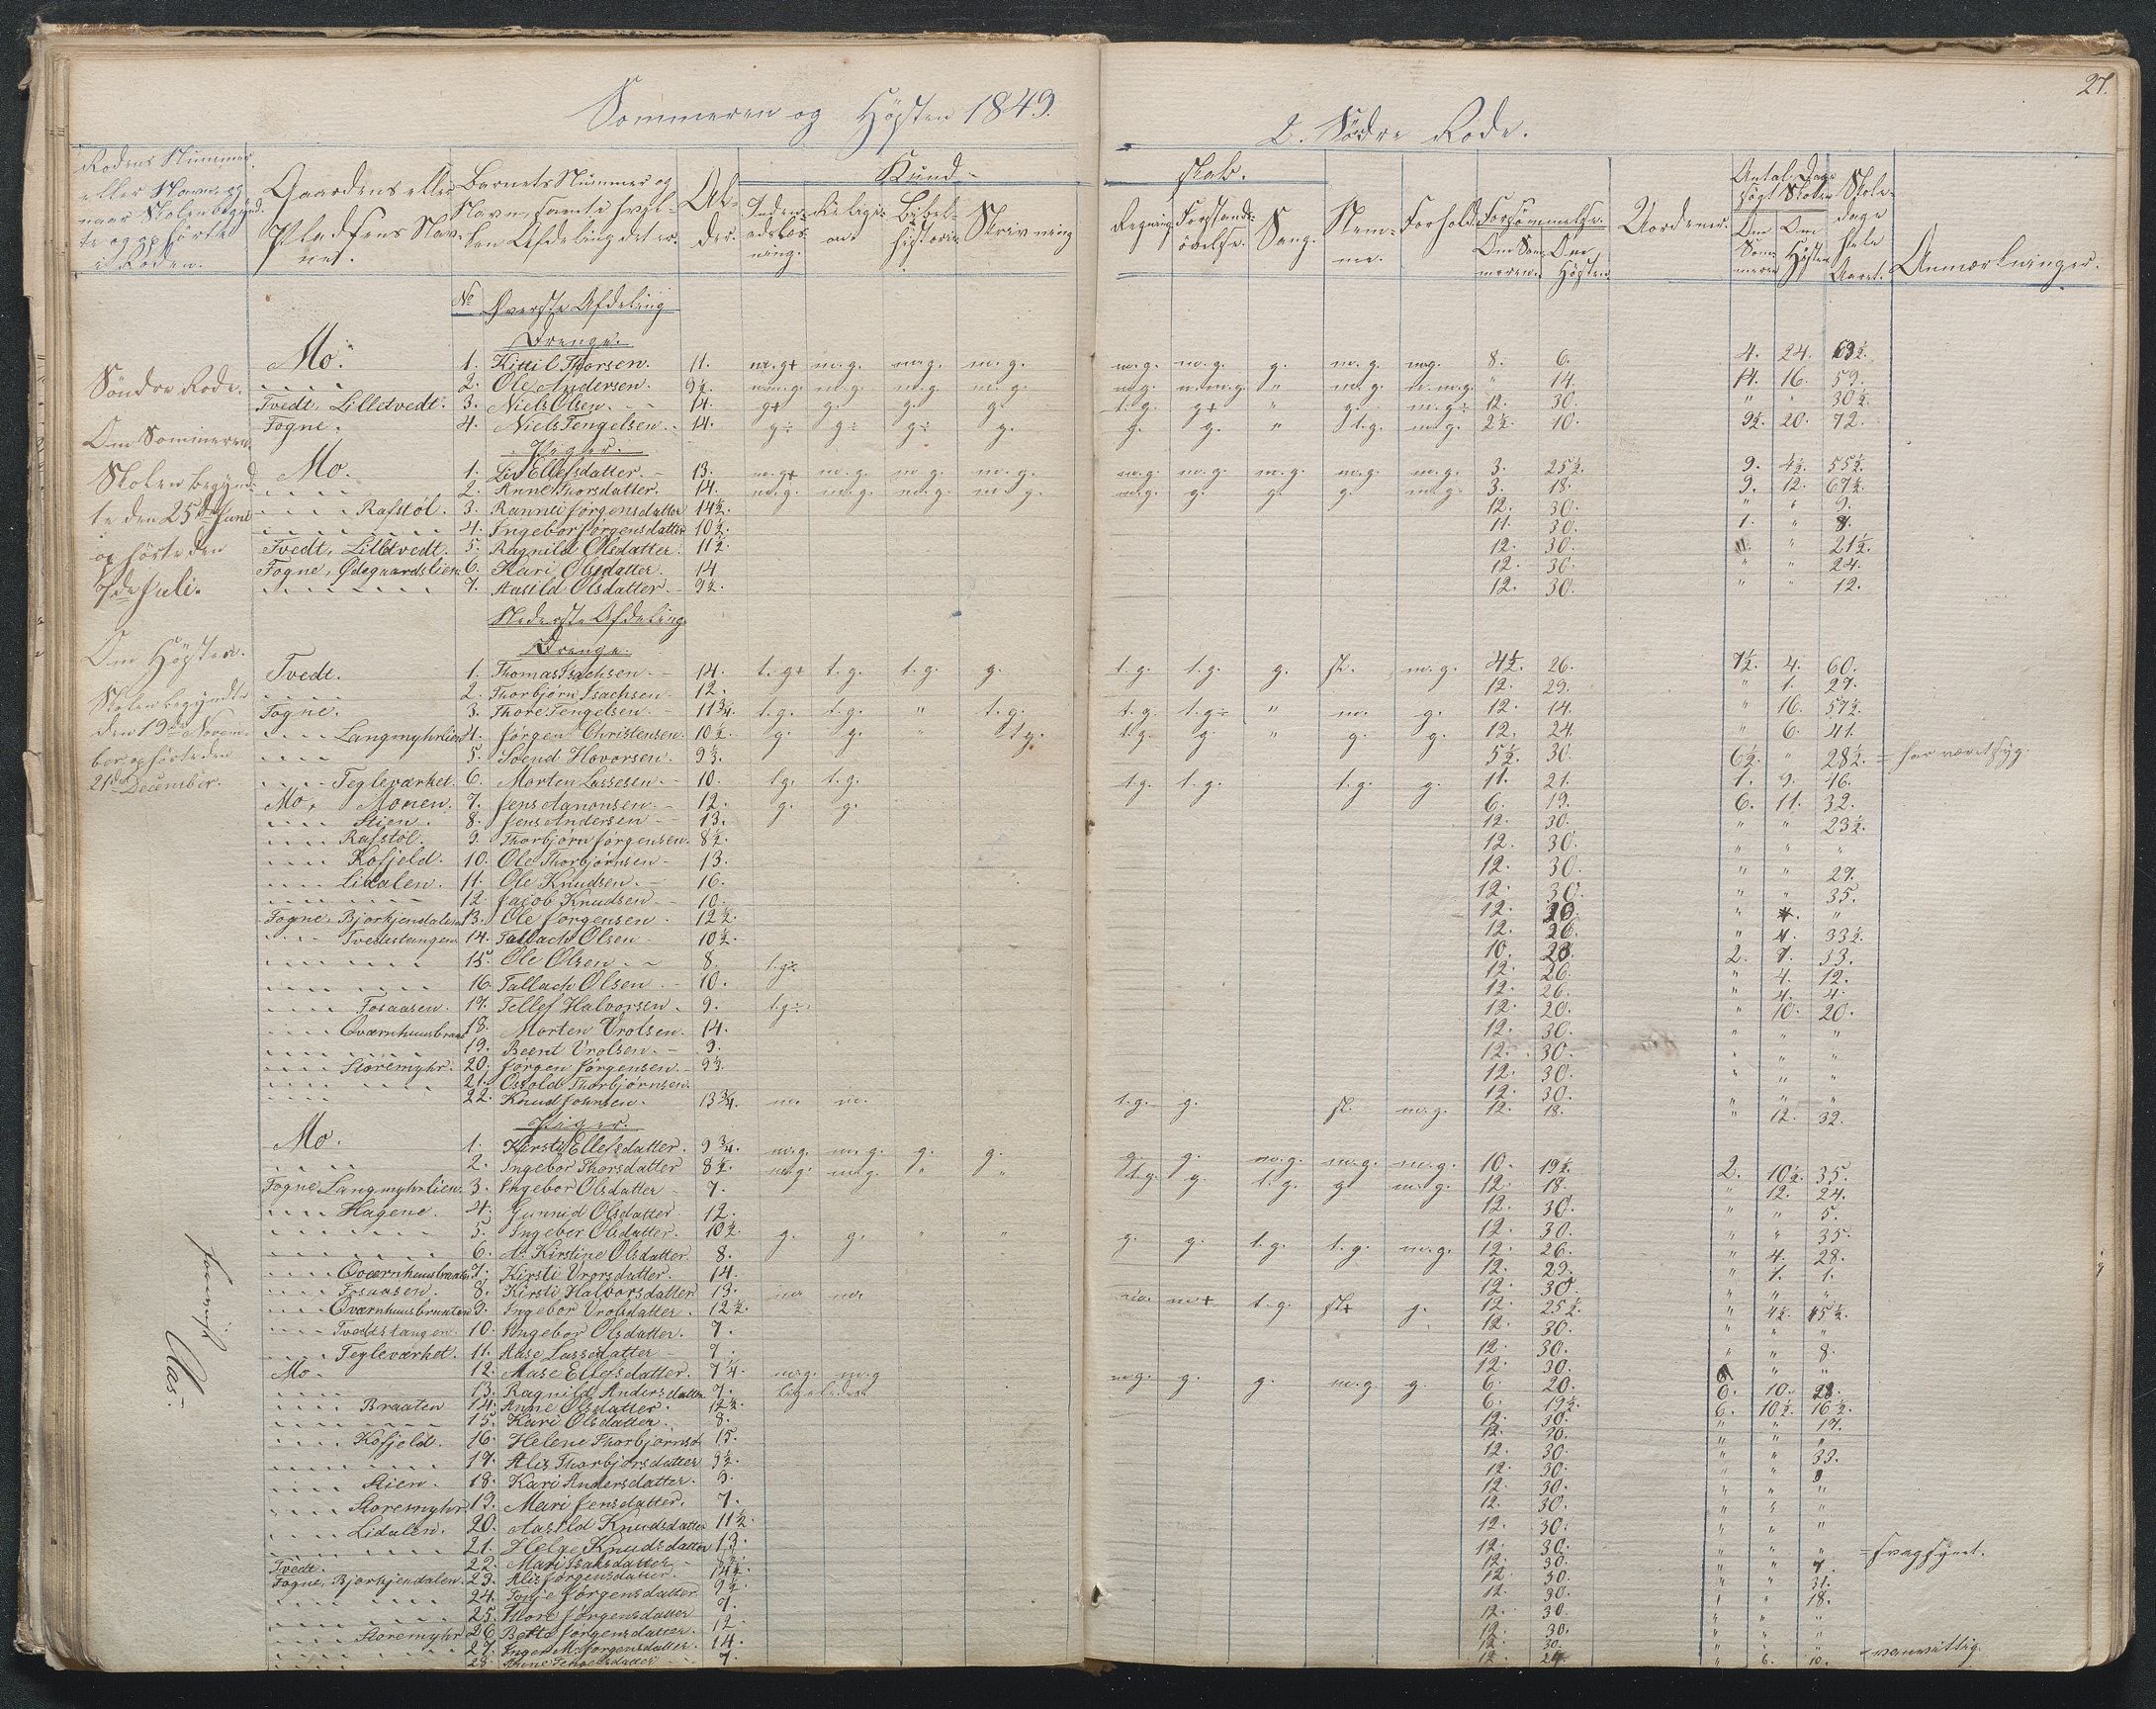 27.
Sommeren og Høsten 1849.
2. Søndre Rode.
Rodens Nummer
eller Navn, og
naar Skolen begynd-
te og ophørte
i Roden.
Gaardens eller
Pladsens Nav-
net.
Barnets Nummer og
Navn, samt i hvil-
ken Afdeling det er.
Al-
der.
Kund-
skab.
Religi-
on.
Bibel-
historie.
Skrivning
Regning.
Forstands-
øvelse.
Sang.
Nem-
me.
Forhold.
Forsømmelse.
Om Som-
meren.
Om
Høsten.
Uordener.
Antal Dage
søgt Skolen
Om
Som-
meren
Om
Høsten
Skole-
dage
hele
Aaret.
Anmærkninger.
Søndre Rode.
Om Sommeren.
Skolen begynd-
te den 25de Juni
ophørte den
7de Juli.
Om Høsten.
Skolen begyndte
den 19de Novem-
ber, ophørte den
21de December.
Aas.
No Øverste Afdeling
Drenge.
Mo. 1. Kittil Thorsen. 11. m.g+ m.g. m.g. m.g. m.g. m.g. g. m.g. mg. 8. 6. 4. 24. 63½.
2. Ole Andersen. 9½. m.g. m.g. m.g. m.g. m.g. g. m.g. m.g. " 14. 14. 16. 59.
Tvedt, Lilletvedt. 3. Niels Olsen. 14. g+ g. g. g. t.g. g+ " g. m.g÷ 12. 30. " " 30½.
Fogne. 4. Niels Tengelsen. 14. g÷ g÷ g÷ g. g. g. " t.g. m.g. 2½. 10. 9½. 20. 72.
Piger.
Mo. 1. Liv Ellefsdatter. 13. m.g+ m.g. m.g. m.g. m.g. m.g. m.g. m.g. m.g. 3. 25½. 9. 4½. 55½.
2. Anne Thorsdatter. 14. m.g. m.g. m.g. m.g. m.g. g. g. g. m.g. 3. 18. 9. 12. 67½.
Rafstøl. 3. Rannei Jørgensdatter 14½. 12. 30. " " 9.
4. Ingebor Jørgensdatter 10½. 11. 30. 1. " 8.
Tvedt, Lilletvedt. 5. Ragnild Olsdatter. 11½. 12. 30. " 21½.
Fogne, Ødegaardslien 6. Kari Olsdatter. 14 12. 30. " " 24.
7. Aasild Olsdatter. 9½. 12. 30. " " 12.
Nederste Afdeling
Drenge.
Tvedt. 1. Thomas Isachsen. 14. t.g+ t.g. t.g. g. t.g. t.g. g. sl. m.g. 4½. 26. 7½. 4. 60.
2. Thorbjørn Isachsen. 12. 12. 29. " 1. 27.
Fogne. 3. Thore Tengelsen. 11¾. t.g. t.g. " t.g. t.g. t.g÷ " m. g. 12. 14. " 16. 57½.
Langmyhrlien 4. Jørgen Christensen. 10½. g. g. " t.g. t.g. g. " g. g. 12. 24. " 6. 41.
5. Svend Hovorsen. 9½. 5½. 30. 6½. " 28½. = har været syg.
Tegleværket. 6. Morten Lassesen. 10. t.g. t.g. t.g. t.g. t.g. g. 11. 21. 1. 9. 46.
Mo, Monen. 7. Jens Aanonsen. 12. g. g. 6. 19. 6. 11. 32.
Stien. 8. Jens Andersen 13. 12. 30. " " 23½.
Rafstøl. 9. Thorbjørn Jørgensen. 8½. 12. 30. " " "
Kofjeld. 10. Ole Thorbjørnsen 13. 12. 30. " " 27.
Lidalen. 11. Ole Knudsen. 16. 12. 30. " " 35.
12. Jacob Knudsen 10. 12.
Fogne, Bjorkjendalen 13. Ole Jørgensen. 12½. 12. 26.
Tvedtstangen 14. Tallach Olsen 10½. " 4. 33½.
15. Ole Olsen. 8. t.g÷ 10. 28. 2. 7. 33.
16. Tallach Olsen. 10. 12. 26. " 4. 12.
Fosaasen. 17. Tellef Halvorsen. 9. t.g÷ 12. 26. " 4. 4.
Qværnhuusbraat. 18. Morten Vrolsen. 14. 12. 20. " 10. 20.
19. Beent Vrolsen. 9. 12. 30. " " "
Storemyhr. 20. Jørgen Jørgensen. 9½. 12. 30.
21. Osvold Thorbjørnsen. 12. 30.
22. Knud Johnsen. 13¾. m. m. t.g. g. sl. m.g. 12. 18. " 12. 32.
Piger.
Mo. 1. Kirsti Ellefsdatter. 9¾. m.g. m.g. g. g. g. g. m.g. m.g. m.g. 10. 19½. 2. 10½. 35.
2. Ingebor Thorsdatter 8½. m.g. m.g. " " t.g. g. t.g. g. m.g. 12. 18. " 12. 24.
Fogne, Langmyhrlien. 3. Ingebor Olsdatter 7. 12. 30. " " 5.
Hagene. 4. Gunnild Olsdatter 12. 12. 30. " " 35.
5. Ingebor Olsdatter. 10½. g. g. " " g. g. t.g. t.g. m.g. 12. 26. " 4. 28.
6. A. Kirstine Olsdatter. 8. 12. 29. " 1. 1.
Qværnhuusbraaten 7. Kirsti Vrorsdatter. 14. 12. 30. " " "
Fosaasen. 8. Kirsti Halvorsdatter 13. m. m. m. m+ t.g. sl+ g. 12. 25½. " 4½. 45½.
Qværnhuusbraaten 9. Ingebor Vrolsdatter. 12½. 12. 30. " " "
Tvedtstangen. 10. Ingebor Olsdatter. 7. 12. 30. " " 8.
Tegleværket. 11. Aase Lassedatter 7. 12. 30.
Mo. 12. Aase Ellefsdatter. 7¼. m.g. m.g. m.g. g. g. m.g. g. 6. 20. 6. 10. 28.
13. Ragnild Andersdatter 7. ligeledes 6. 19½. 6. 10½. 16½.
Braaten 14. Anne Olsdatter. 12½. 12. 30. " " 17.
15. Kari Olsdatter. 8. 12. 30.
Kofjeld. 16. Helene Thorbjørnsd. 15. 12. 30. " " 33.
17. Alis Thorbjørsdatter 9½. 12. 30.
Stien. 18. Kari Andersdatter. 9. 12. 30. " " "
Storemyhr. 19. Mari Jensdatter. 7. 12. 30. " " "
Lidalen. 20. Aasild Knudsdatter 11½. 12. 30. " " "
21. Helge Knudsdatter 13. 12. 30. " " " = svagsynet.
Tvedt. 22. Mari Isaksdatter 12. 30. " " 7.
Fogne, Bjorkjendalen. 23. Alis Jørgensdatter. 14½. 12. 30. " " 31.
24. Tonje Jørgensdatter 9½. 12. 30. " " 18.
25. Thore Jørgensdatter 7. 12. 30. " " "
Storemyhr 26. Berte Jørgensdatter. 12. 12. 30.
27. Inger M. Jørgensdatter. 14. 12. 30. " " " = vanvittig.
28. 7. 12. 24. " 6. 10.